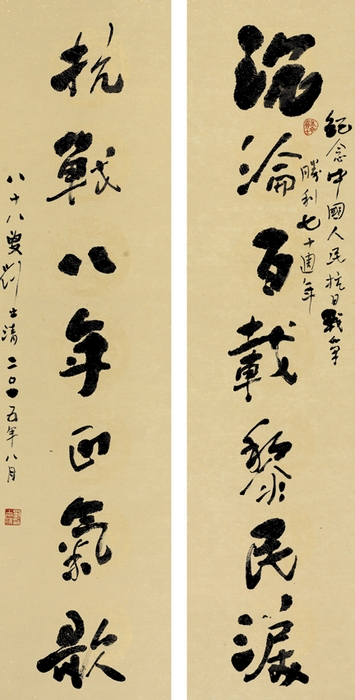 紀念中國人民抗日戰爭
勝利七十週年
沉淪百載黎民淚
抗戰八年正氣歌
八十八叟劉士清二〇一五年八月